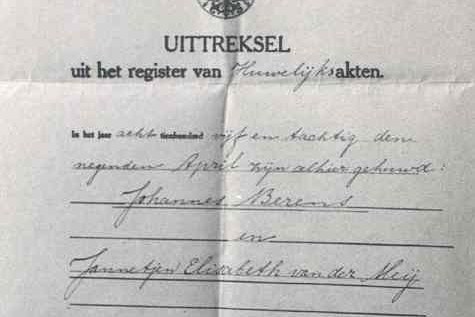 UITTREKSEL
uit het register van Huwelijksakten.
In het jaar acht tienhonderd vijf en tachtig den
negenden April zijn alhier gehuwd:
Johannes Berens
en
Jannetjen Elisabeth van der Meij